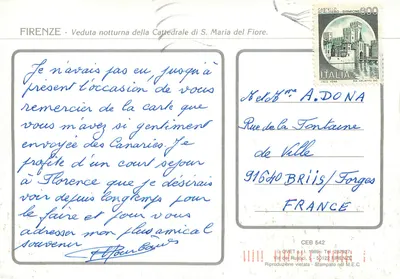 FIRENZE - Veduta notturna della Cattedrale di S. Maria del Fiore.
600
ITALIA
Je n'avais pas eu, jusqu'à
présent l'occasion de vous
remercier de la carte que
vous m'avez si gentiment
envoyée des Canaries. Je
profite d'un court séjour
à Florence que je désirais
voir depuis longtemps pour
le faire et pour vous
adresser mon plus amical
souvenir
M et Mme A. DONA
Rue de la Fontaine
de Ville
91640 BRIIS/Forges
FRANCE
CEB 642
50123 FIRENZE
Riproduzione vietata